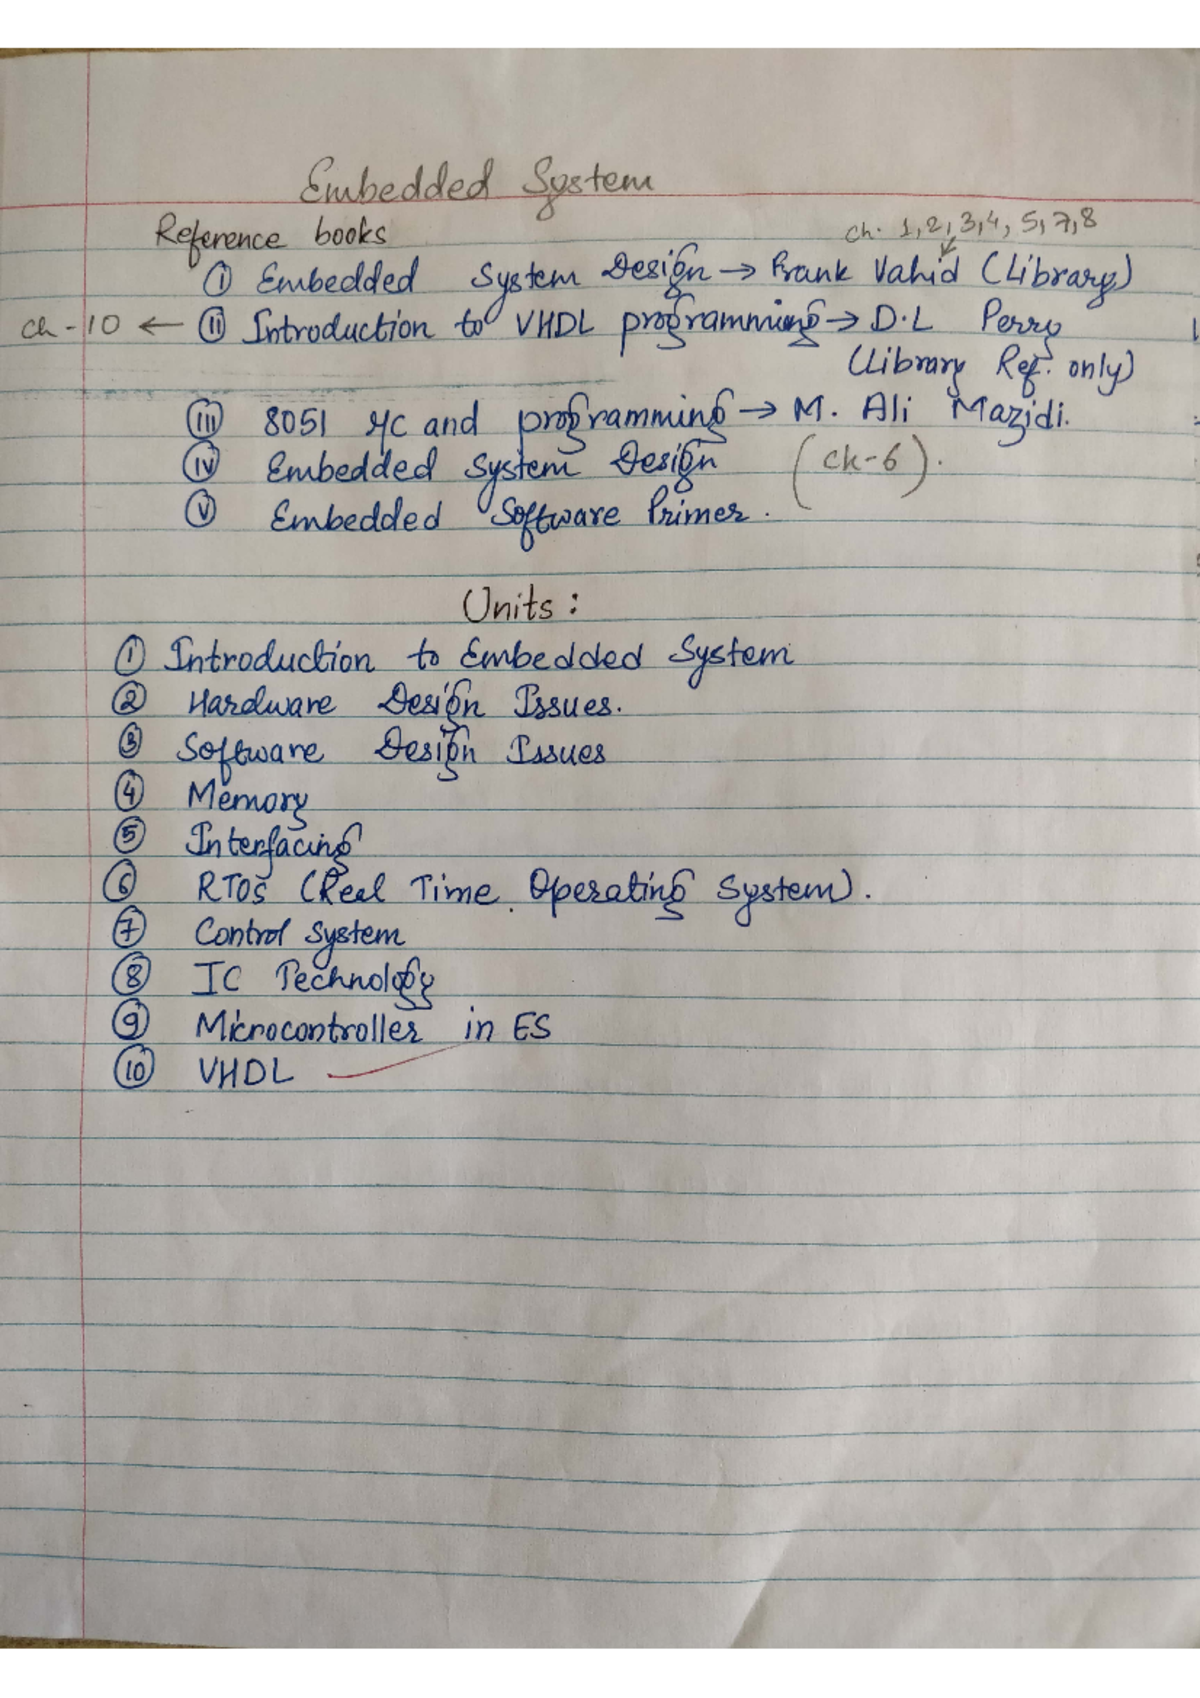 Embedded System
Reference books
ch. 1,2,3,4, 5,7,8
(i) Embedded System Design → Frank Vahid (Library)
ch-10 ← (ii) Introduction to VHDL programming → D.L Perry
(Library Ref. only)
(iii) 8051 μC and programming → M. Ali Mazidi.
(iv) Embedded System Design (ch-6).
(v) Embedded Software Primer.
Units:
① Introduction to Embedded System
② Hardware Design Issues.
③ Software Design Issues
④ Memory
⑤ Interfacing
⑥ RTOS (Real Time Operating System).
⑦ Control System
⑧ IC Technology
⑨ Microcontroller in ES
⑩ VHDL